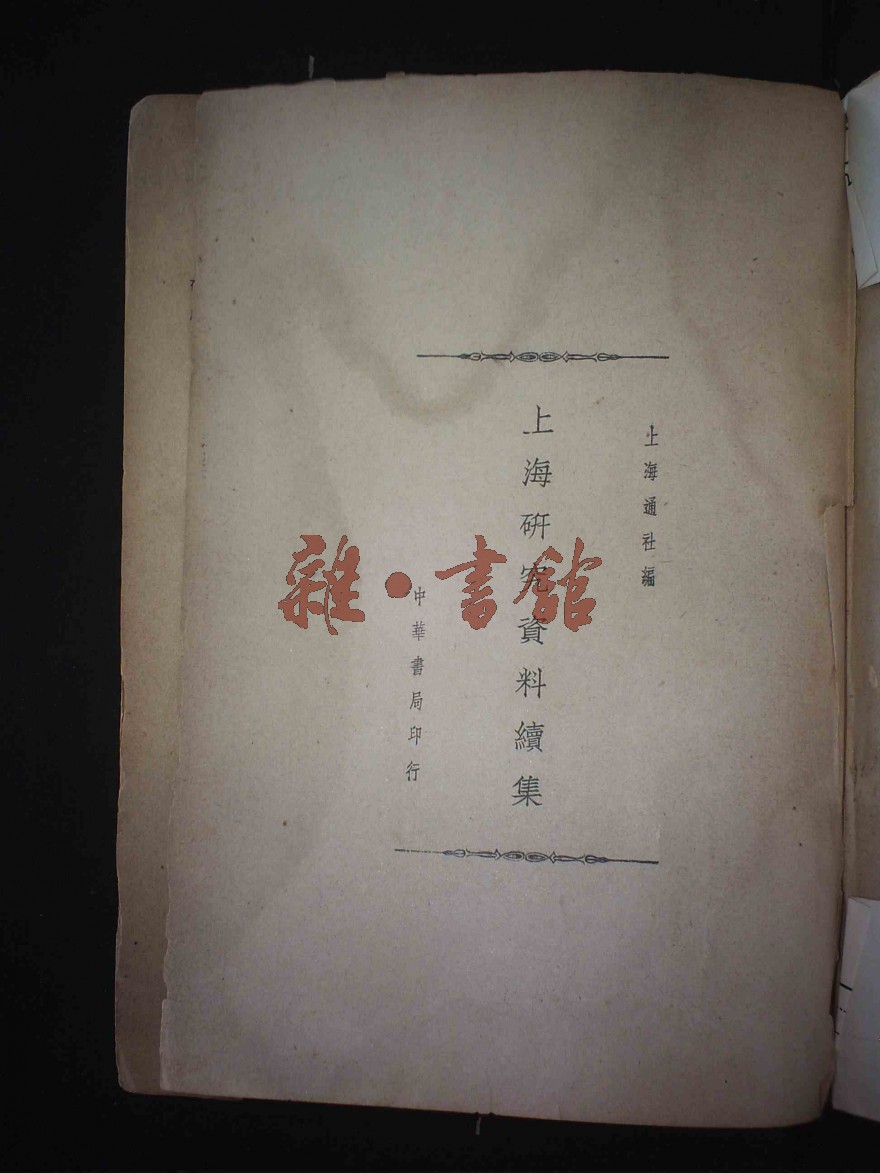 上海通社編
上海研究資料續集
中華書局印行
雜·書館